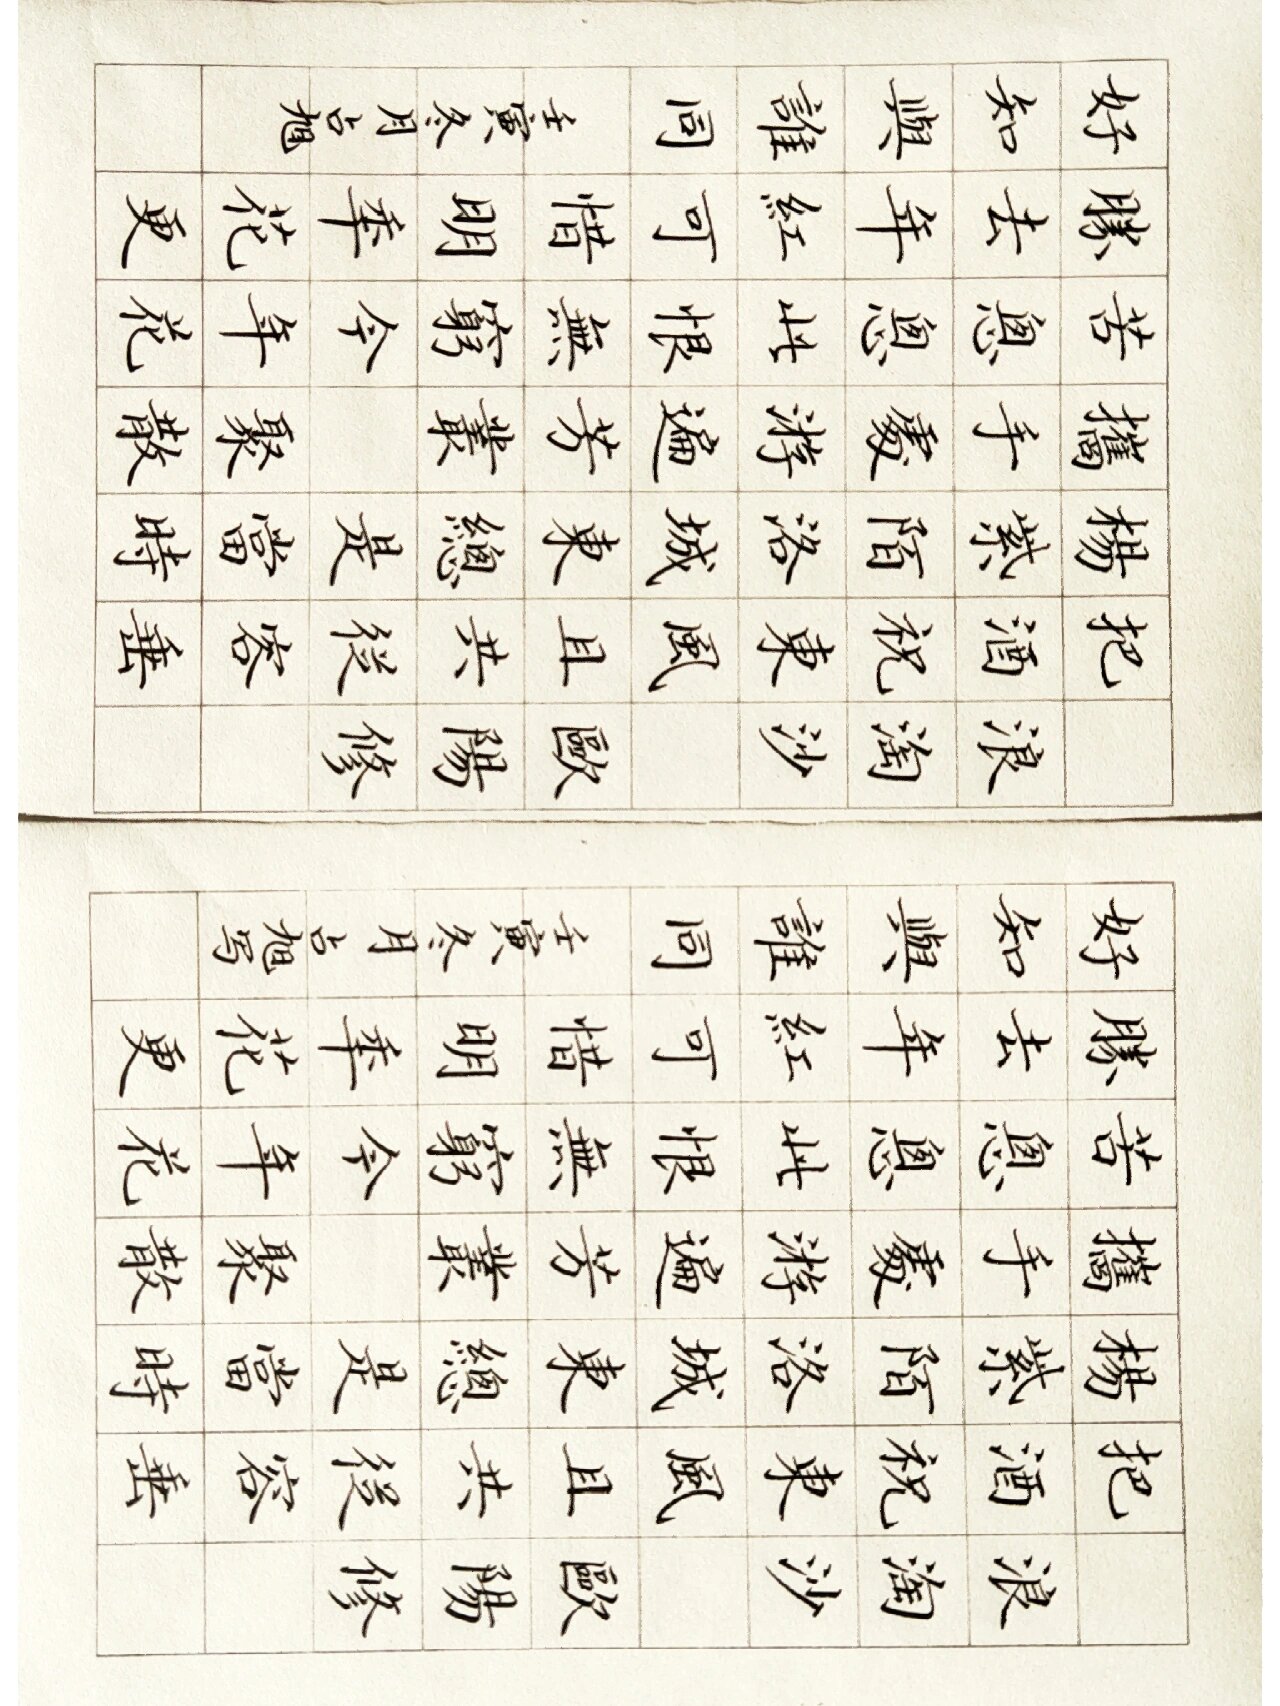 浪淘沙 歐陽修
把酒祝東風且共從容垂
楊紫陌洛城東總是當時
攜手處游遍芳叢 聚散
苦悤悤此恨無窮今年花
勝去年紅可惜明秊花更
好知與誰同 壬寅冬月占旭写
浪淘沙 歐陽修
把酒祝東風且共從容垂
楊紫陌洛城東總是當時
攜手處游遍芳叢 聚散
苦悤悤此恨無窮今年花
勝去年紅可惜明秊花更
好知與誰同 壬寅冬月占旭